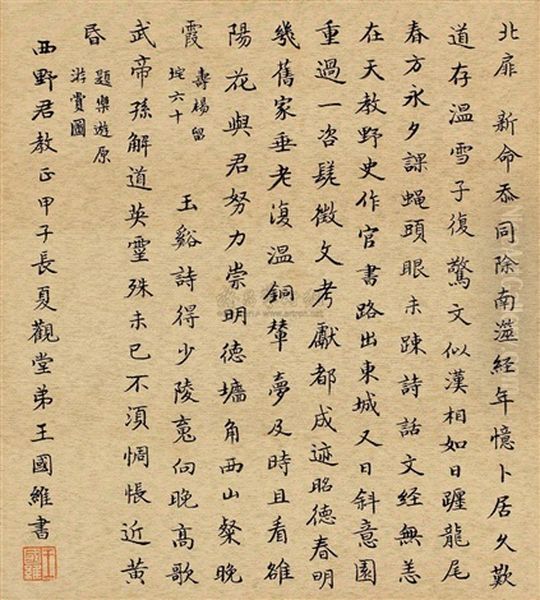 北扉新命忝同除南澨經年憶卜居久歎
道存溫雪子復驚文似漢相如日躔龍尾
春方永夕課蝇頭眼未踈詩話文經無恙
在天教野史作官書路出東城又日斜意園
重過一咨髿徵文考獻都成迹昭德春明
幾舊家垂老復溫銅輦夢及時且看雒
陽花與君努力崇明德墻角西山粲晚
霞
壽楊留
垞六十
玉谿詩得少陵䰟向晚高歌
武帝孫解道英靈殊未已不須惆悵近黃
昏
題樂遊原
游賞圖
西野君教正甲子長夏觀堂弟王國維書
王國維